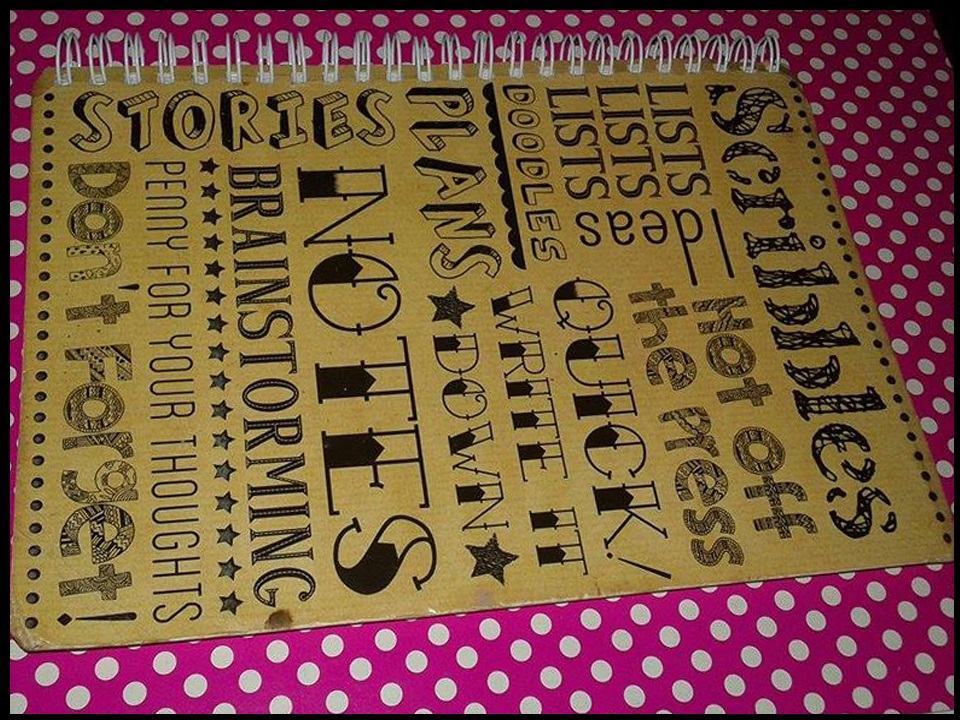 Scribbles
LISTS
LISTS
LISTS
Ideas
DOODLES
Hot off
the press
PLANS
STORIES
QUICK!
WRITE IT
DOWN
NOTES
BRAINSTORMING
PENNY FOR YOUR THOUGHTS
Don't forget!